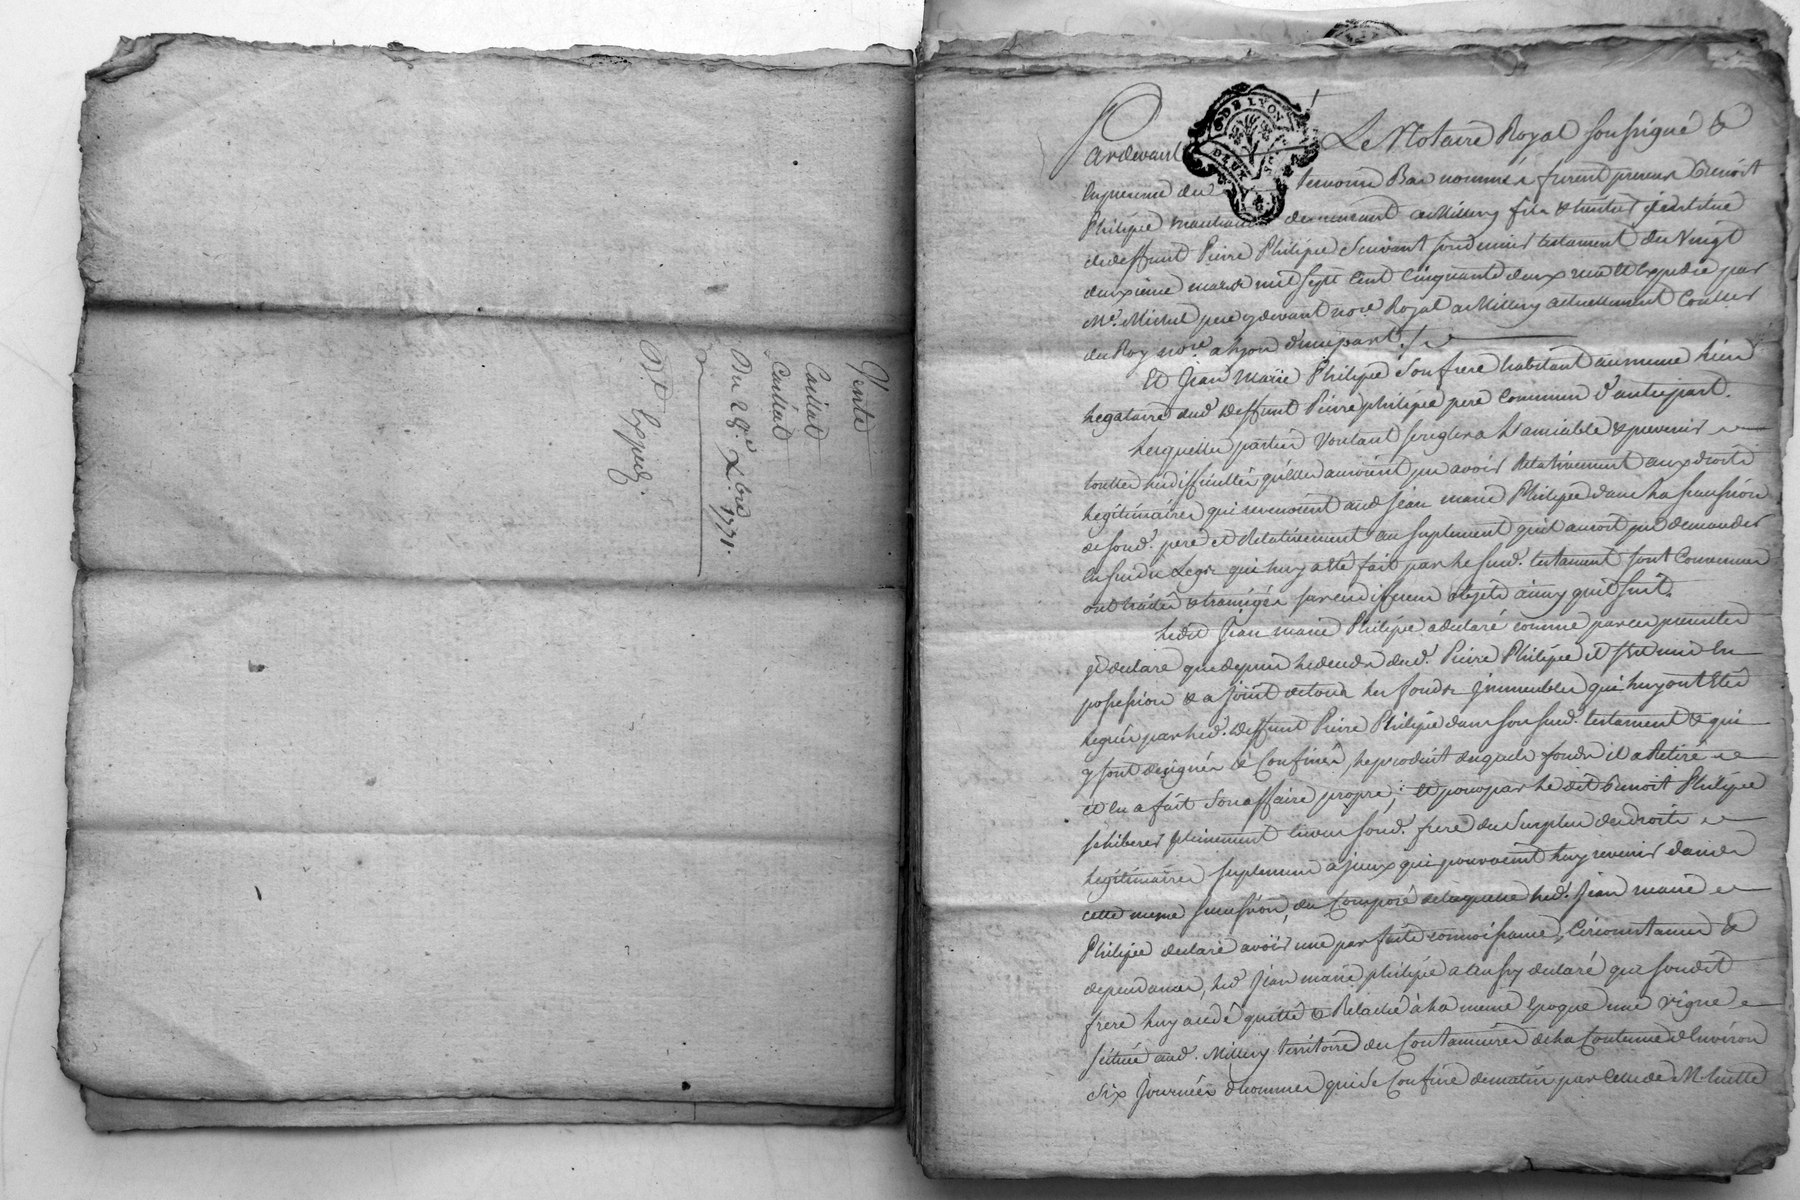 Vente
Caillat
Caillat
Du 28e Xbre
1771.
Expedié.
G DE LYON
DEUX
Pardevant Le Notaire Royal soussigné &
En presence des temoins Bas nommés furent presens Benoit
Philipe marchand demeurant a Millery fils & heritier institué
de deffunt Pierre Philipe suivant son dernier testament du Vingt
deuxieme mars mil sept Cent Cinquante deux reçu et Expedié par
Me. Michel pere cy devant nore. Royal a Millery actuellement Coner
du Roy nore. a Lyon d'une part.
Et Jean Marie Philipe son frere habitant au meme Lieu
Legataire dud. deffunt Pierre philipe pere Commun d'autre part.
Lesquelles parties Voulant se regler a L'amiable & prevenir
touttes les difficultés qu'elles auroient pu avoir Relativement aux droits
Legitimaires qui revenoient aud. Jean marie Philipe dans La succession
de sond. pere et Relativement au suplement qu'il auroit pu demander
En sus du Legs qui luy a Eté fait par le susd. testament sont Convenues
ont traitté & transigés sur ces differens objets ainsy qu'il suit.
Ledit Jean marie Philipe a declaré comme par ces presentes
il declare que depuis le deces dud. Pierre Philipe il s'est mis En
possession & a joüit de tous les fonds & jmmeubles qui luy ont Eté
legués par led. deffunt Pierre Philipe dans son susd. testament & qui
y sont designés & Confinés, le produit desquels fonds il a Retiré
et En a fait son affaire propre; Et pour par le dit Benoit Philipe
se liberer pleinement Envers sond. frere du surplus des droits
legitimaires suplement a jceux qui pouvoient luy revenir dans
cette meme succession, du Composé de laquelle led. Jean marie
Philipe declare avoir une parfaite connoissance, Circonstances &
dependances, led. Jean marie philipe a aussy declaré que son dit
frere luy a cedé quitté & Relaché à La meme Epoque une vigne
scituée aud. Millery territoire des Contamines de La Contenue d'Environ
Six Journées d'hommes qui se Confine de matin par Celle de M.